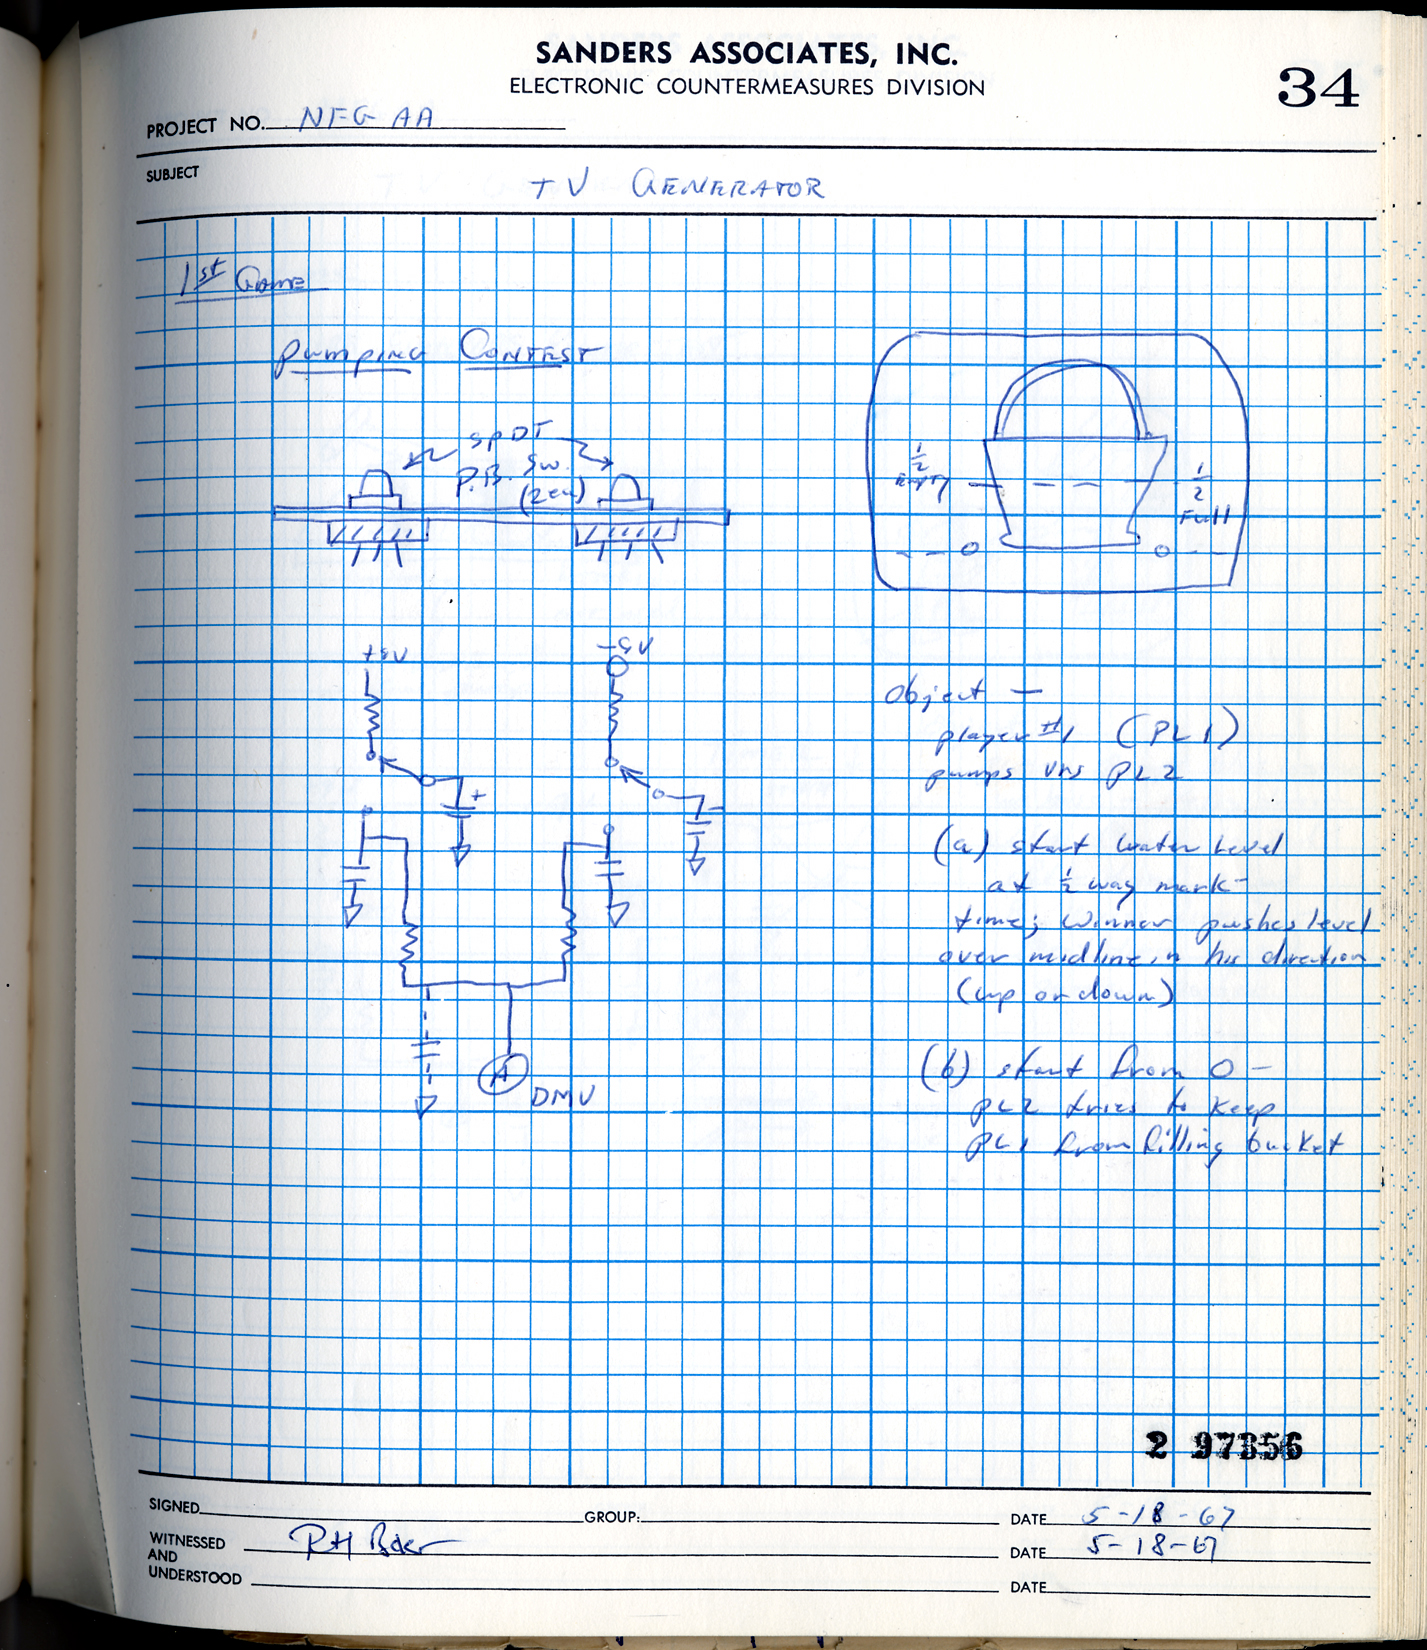 SANDERS ASSOCIATES, INC.
ELECTRONIC COUNTERMEASURES DIVISION
34
PROJECT NO. NFG AA
SUBJECT
TV GENERATOR
1st Game
Pumping Contest
SPDT
P.B. Sw.
(2 ea)
1/2
Empty
1/2
Full
O
O
+9V
-9V
+
-
A
DMV
Object —
player #1 (PL1)
pumps vrs PL2
(a) start water level
at 1/2 way mark-
time; winner pushes level
over midline in his direction
(up or down)
(b) start from 0 -
PL2 tries to keep
PL1 from filling bucket
2 97356
SIGNED
GROUP:
DATE 5-18-67
WITNESSED
AND
UNDERSTOOD
RH Baer
DATE 5-18-67
DATE